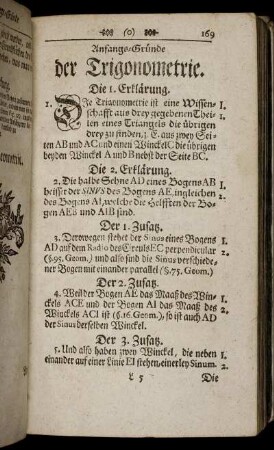 (o) 169
Anfangs-Gründe
der Trigonometrie.
Die 1. Erklärung.
1. Die Trigonometrie ist eine Wissen- 1.
schafft aus drey gegebenen Thei- 1.
len eines Triangels die übrigen
drey zu finden, z. E. aus zwey Sei-
ten AB und AC und einen Winckel C die übrigen
beyden Winckel A und B nebst der Seite BC.
Die 2. Erklärung.
2. Die halbe Sehne AD eines Bogens AB
heisset der SINUS des Bogens AE, ingleichen
des Bogens AI, welche die Helfften der Bo-
gen AEB und AIB sind.
Der 1. Zusatz.
3. Derowegen stehet der Sinus eines Bogens 1.
AD auf dem Radio des Circuls EC perpendicular 2.
(§. 95. Geom.) und also sind die Sinus verschiede-
ner Bogen mit einander parallel (§. 75. Geom.)
Der 2. Zusatz.
4. Weil der Bogen AE das Maaß des Win- 1.
ckels ACE und der Bogen AI das Maaß des 2.
Winckels ACI ist (§. 16. Geom.), so ist auch AD
der Sinus derselben Winckel.
Der 3. Zusatz.
5. Und also haben zwey Winckel, die neben 1.
einander auf einer Linie EI stehen, einerley Sinum. 2.
L 5 Die